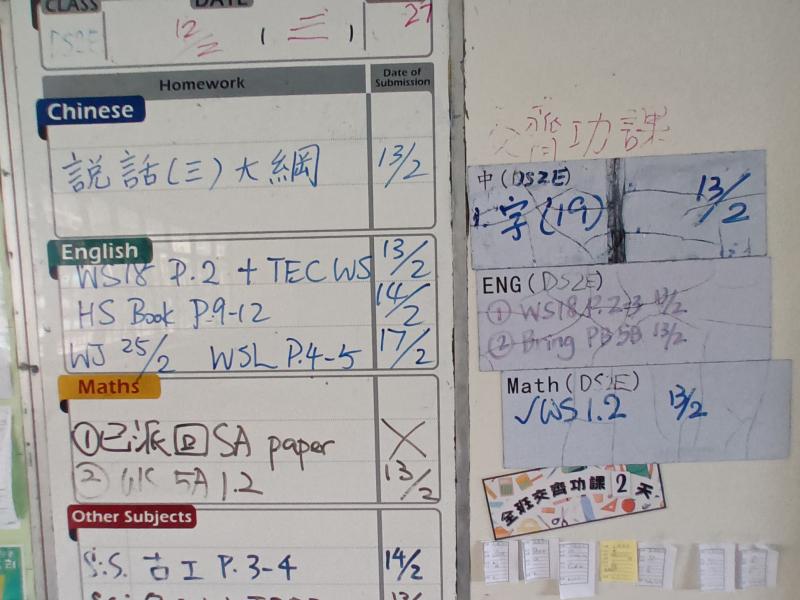 CLASS DATE
DS2E 12/2 (三) 27
Homework Date of Submission
Chinese
説話(三)大綱 13/2
English
WS18 P.2 + TEC WS 13/2
HS Book P.9-12 14/2
WJ 25/2 WSL P.4-5 17/2
Maths
①已派回SA paper ×
② 5A 1.2 13/2
Other Subjects
S.S. 古工 P.3-4 14/2
交齊功課
中(DS2E)
1.字(19) 13/2
ENG(DS2E)
① WS18 P.2-3 13/2
② Bring PB 5B 13/2
Math(DS2E)
✓WS1.2 13/2
全班交齊功課2天